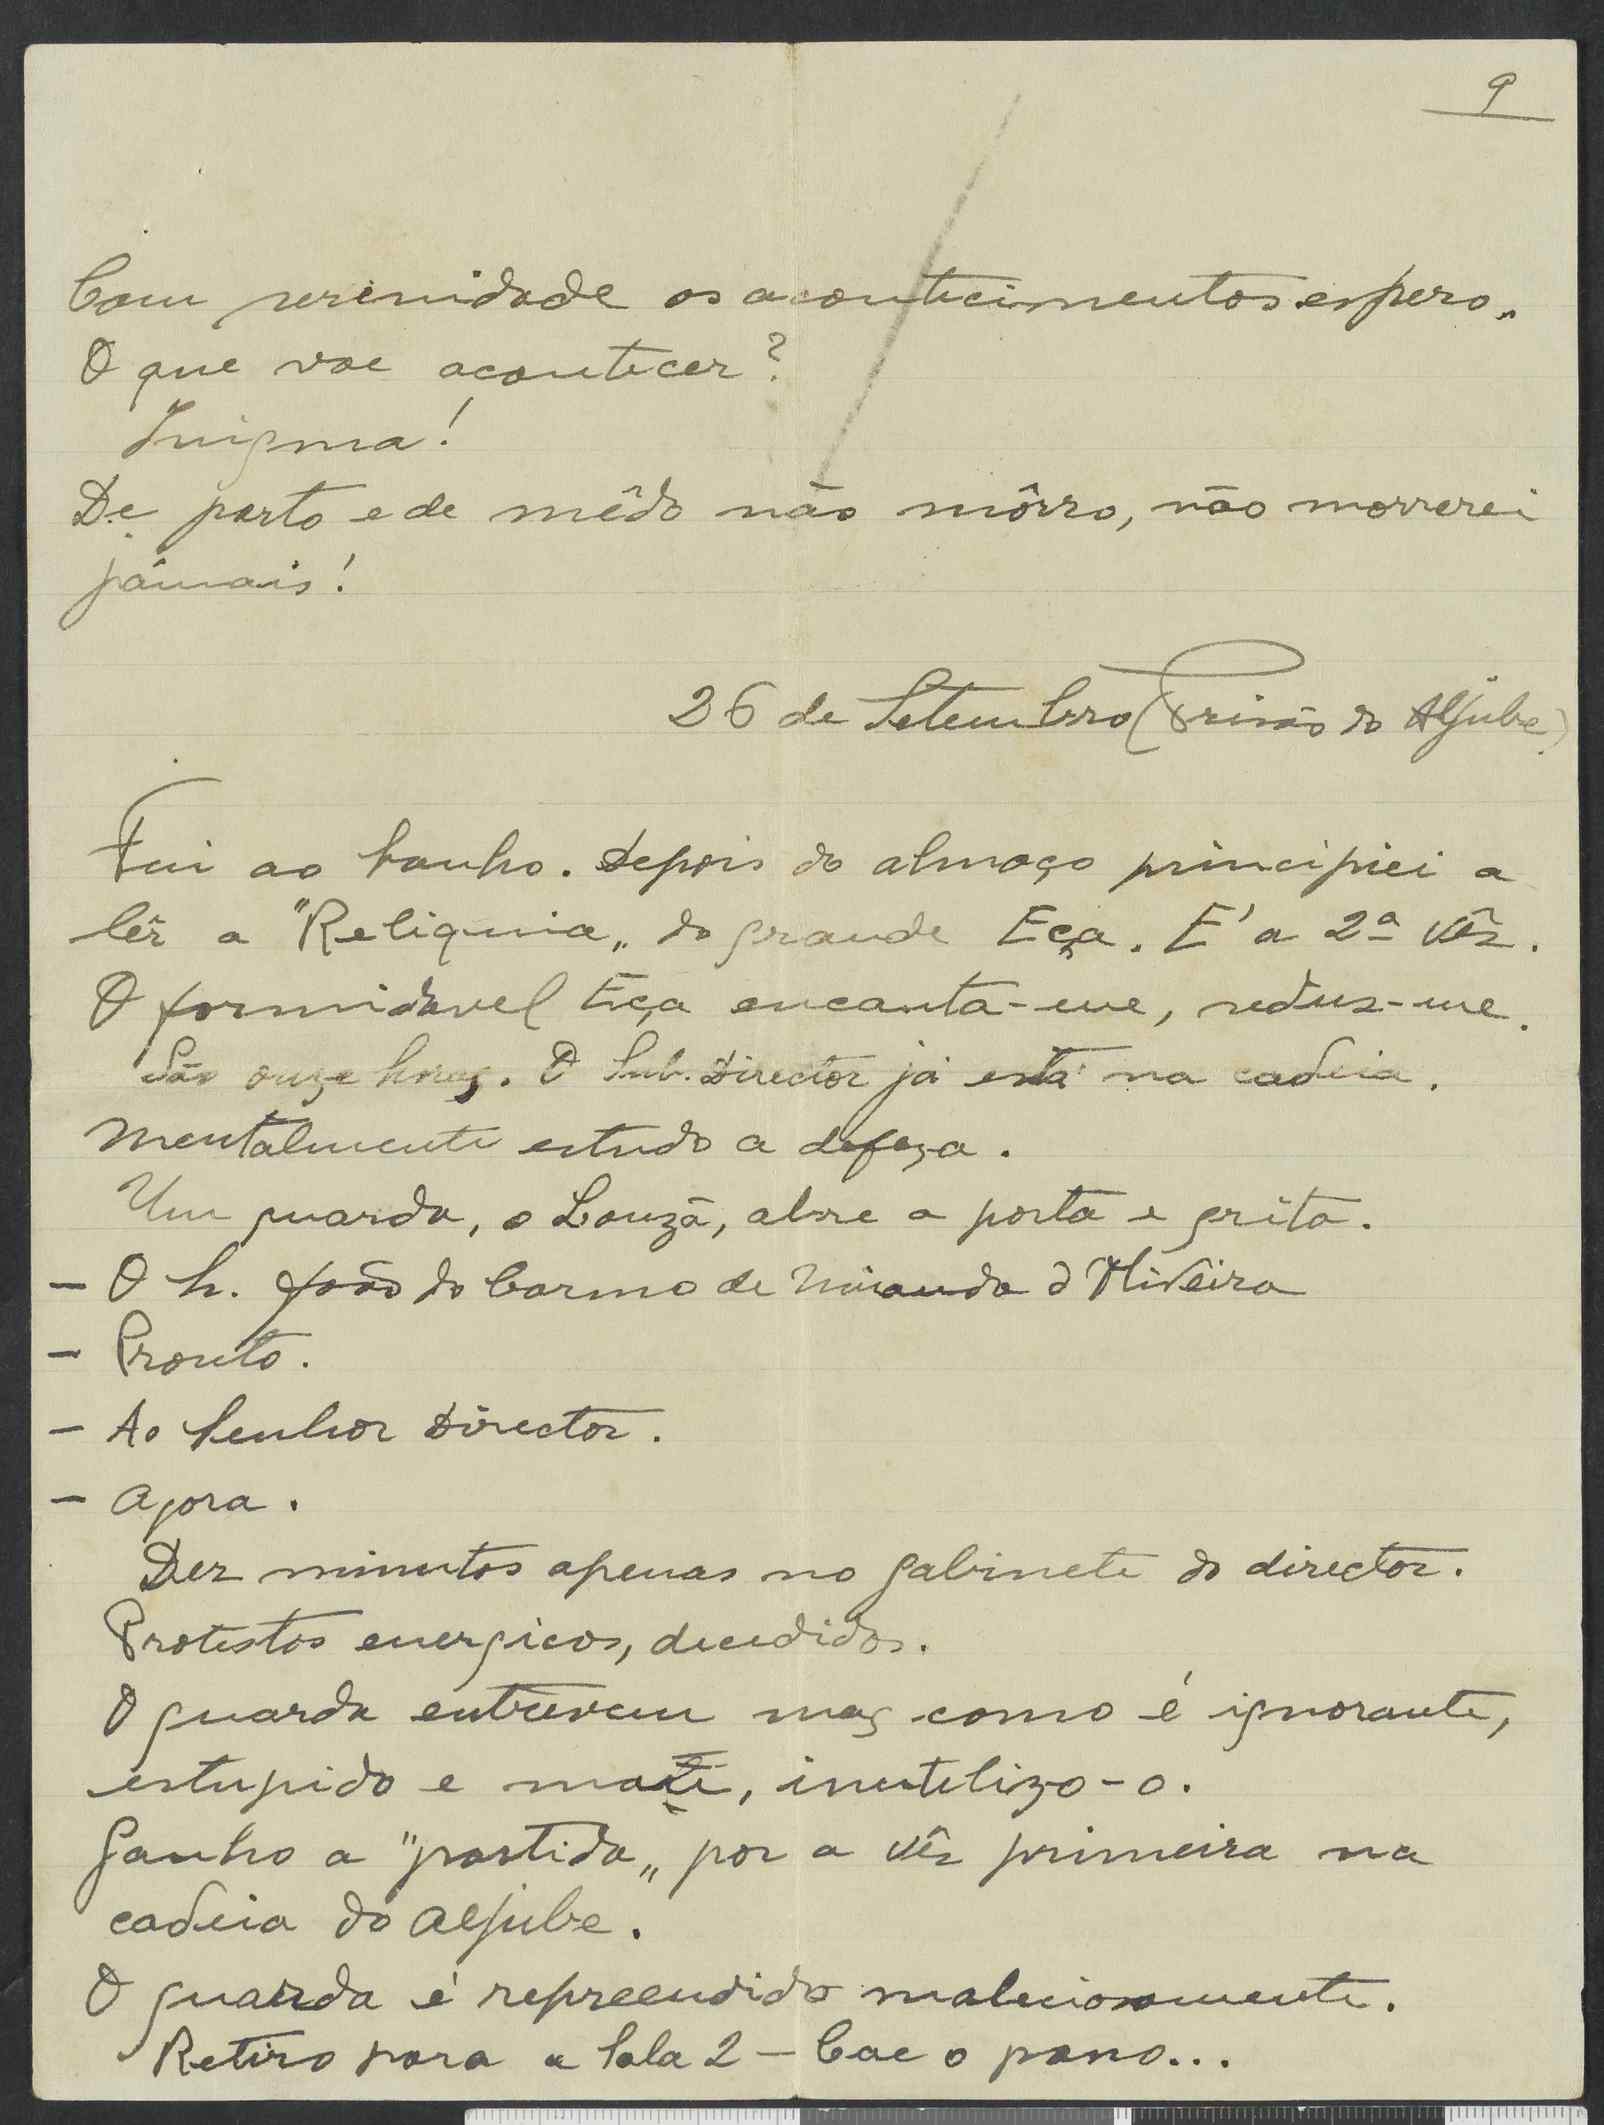 9
Com serenidade os acontecimentos espero„
O que vae acontecer?
Inigma!
De parto e de mêdo não môrro, não morrerei
jámais!
26 de Setembro (Prisão do Aljube)
Fui ao banho. Depois do almoço principiei a
lêr a "Reliquia„ do grande Eça. E' a 2ª vês.
O formidavel Eça encanta-me, seduz-me.
São onze horas. O Sub. Director já está na cadeia.
Mentalmente estudo a defeza.
Um guarda, o Louzã, abre a porta e grita.
— O Sr. João do Carmo de Miranda d'Oliveira
— Pronto.
— Ao Senhor Director.
— Agora.
Dez minutos apenas no gabinete do director.
Protestos energicos, decedidos.
O guarda entrevem mas como é ignorante,
estupido e , inutelizo-o.
Ganho a "partida„ por a vês primeira na
cadeia do Aljube.
O guarda é repreendido maleciosamente.
Retiro para a Sala 2 — Cae o pano...